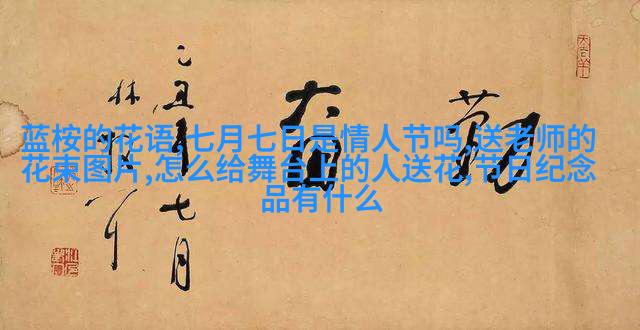 蓝桉的花语,七月七日是情人节吗,送老师的
花束图片,怎么给舞台上的人送花,节日纪念
品有什么
乙丑年七月
林散耳